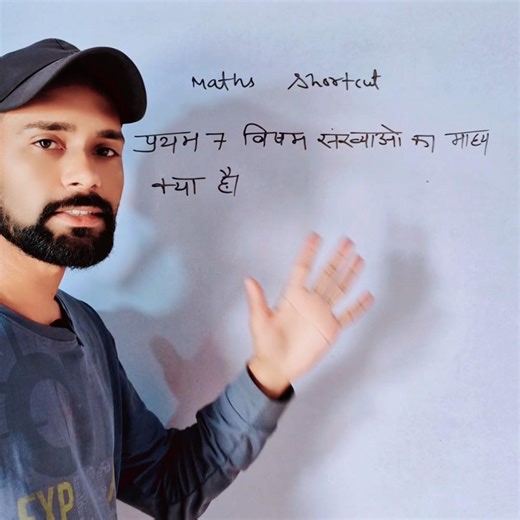 Maths Shortcut
प्रथम 7 विषम संख्याओ का माध्य
क्या है।
EXP